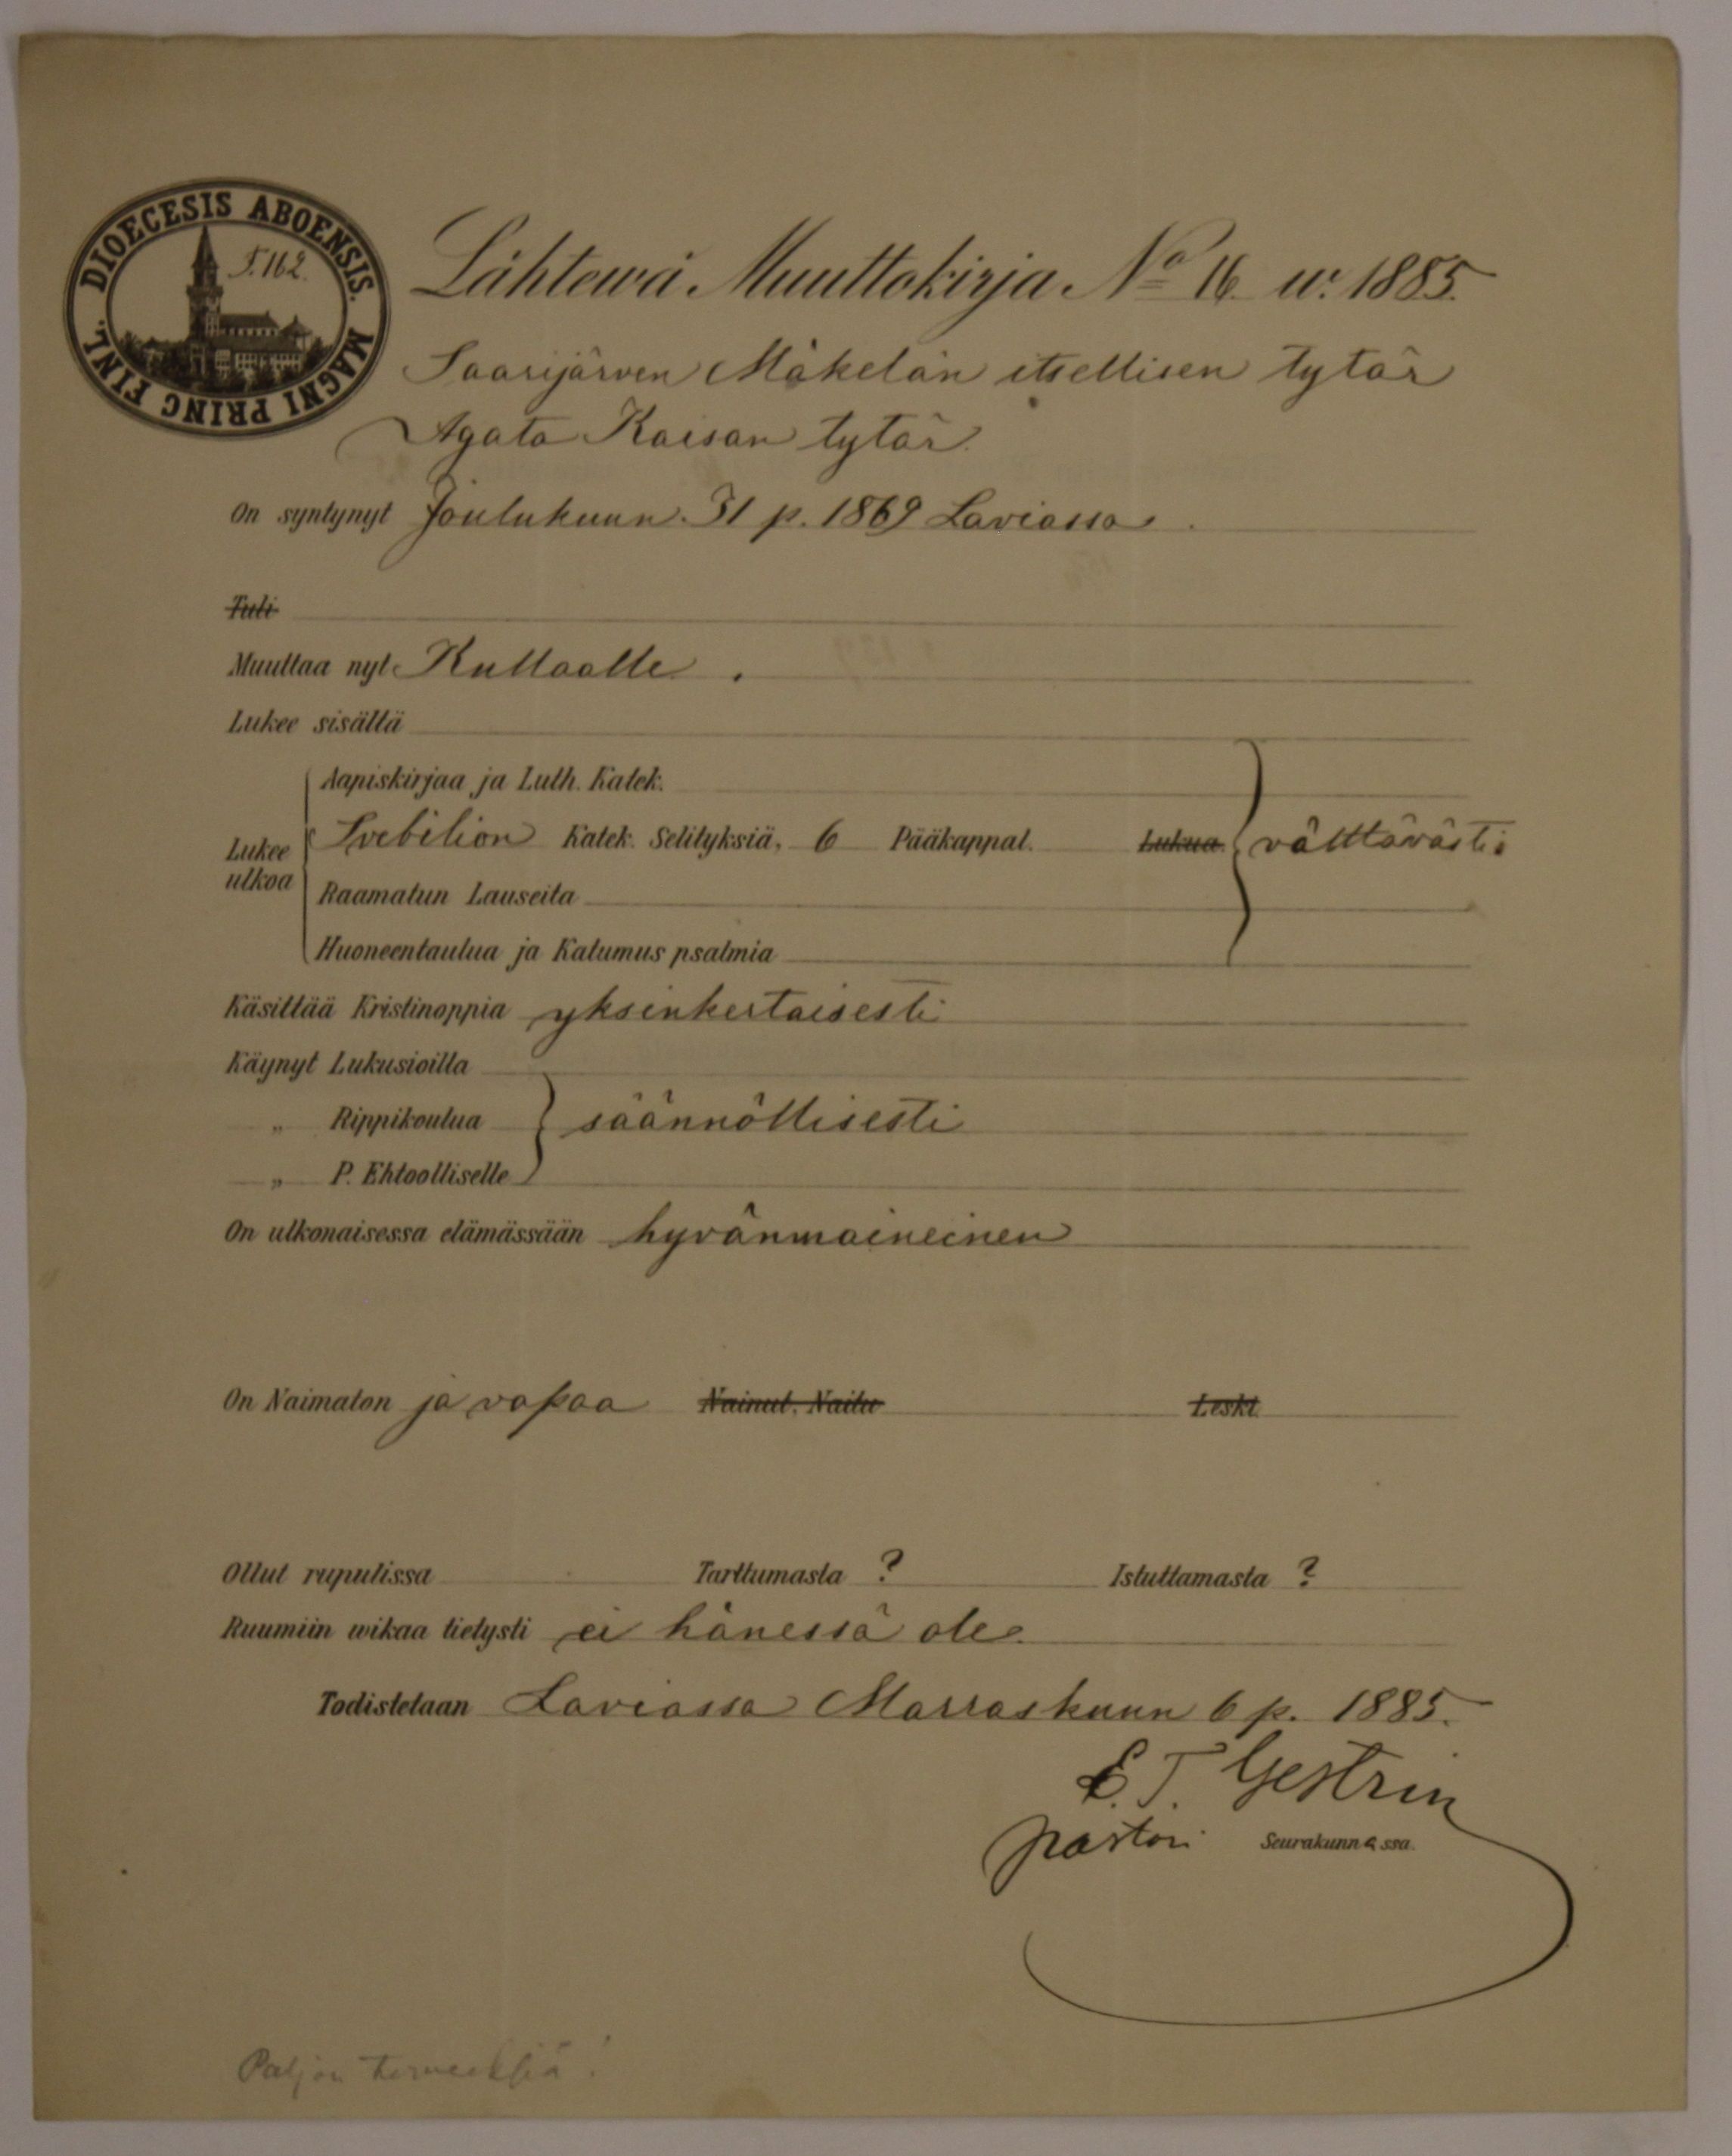 DIOECESIS ABOENSIS. MAGNI PRINC FINL.
F. 162.
Lähtewä Muuttokirja No 16 w. 1885.
Saarijärven Mäkelän itsellisen tytär
Agata Kaisan tytär.
On syntynyt Joulukuun 31 p. 1869 Laviassa.
Tuli
Muuttaa nyt Kullaalle.
Lukee sisältä
Aapiskirjaa ja Luth. Katek.
Lukee ulkoa Svebilion Katek. Selityksiä, 6 Pääkappal. Lukua. välttävästi
Raamatun Lauseita
Huoneentaulua ja Katumus psalmia
Käsittää Kristinoppia yksinkertaisesti
Käynyt Lukusioilla
„ Rippikoulua säännöllisesti
„ P. Ehtoolliselle
On ulkonaisessa elämässään hyvänmaineinen
On Naimaton ja vapaa Nainut, Naitu Leski
Ollut rupulissa Tarttumasta ? Istuttamasta ?
Ruumiin wikaa tietysti ei hänessä ole.
Todistetaan Laviassa Marraskuun 6 p. 1885.
E. T. Gestrin
pastori Seurakunnassa.
Paljon terveeksiä!